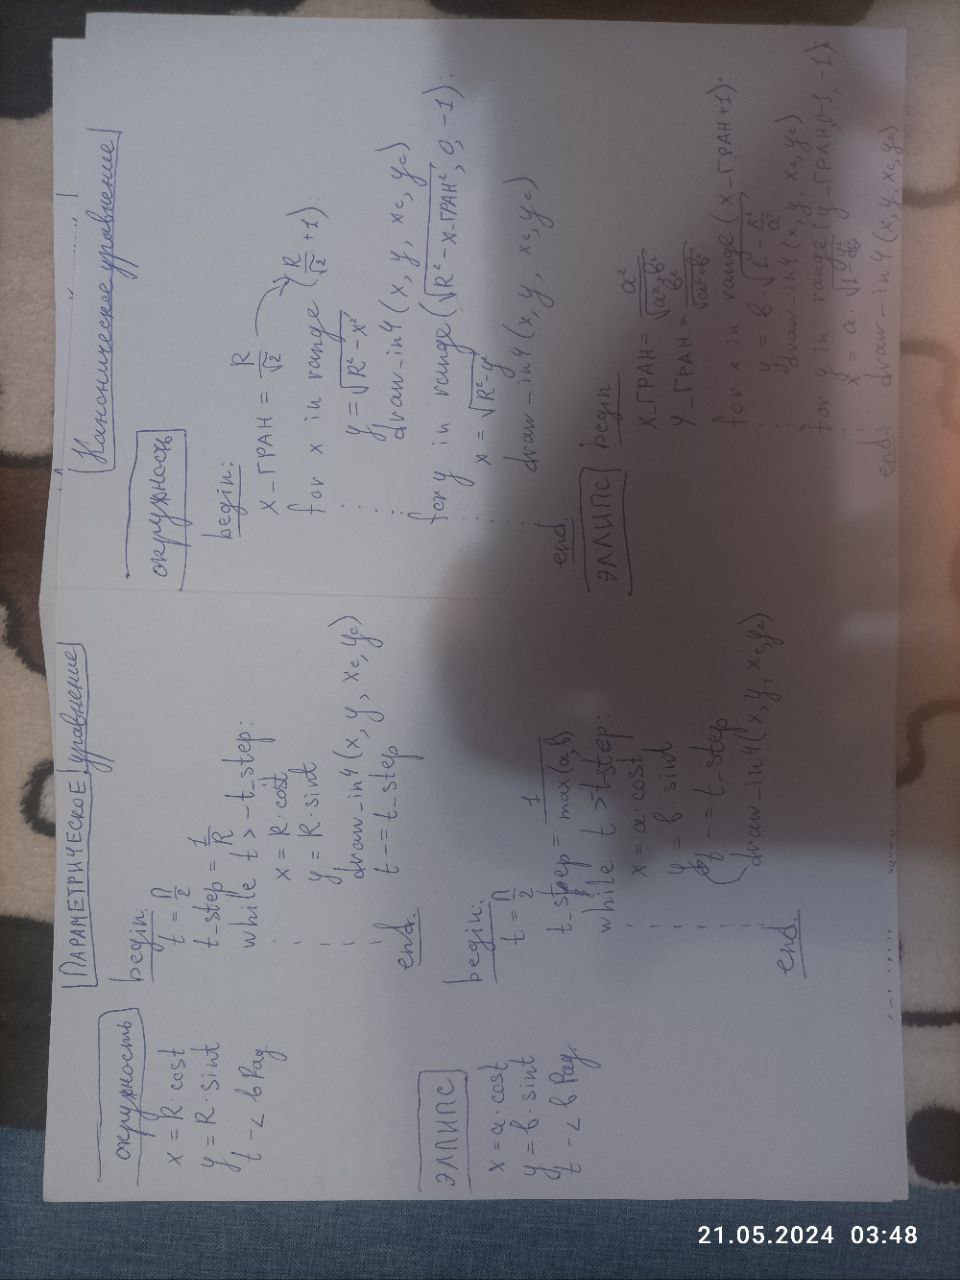 ПАРАМЕТРИЧЕСКОЕ уравнение
окружность
x = R · cost
y = R · sint
t - < в рад
begin:
t = π/2
t_step = 1/R
while t > -t_step:
x = R · cost
y = R · sint
draw_in4(x, y, xc, yc)
t -= t_step
end.
ЭЛЛИПС
x = a · cost
y = b · sint
t - < в рад
begin:
t = π/2
t_step = 1/max(a,b)
while t > -t_step:
x = a · cost
y = b · sint
t -= t_step
draw_in4(x, y, xc, yc)
end.
Каноническое уравнение
окружность
begin:
X_ГРАН = R/√2
for x in range (R/√2 + 1):
y = √R² - x²
draw_in4(x, y, xc, yc)
for y in range(√R² - x_ГРАН², 0, -1):
x = √R² - y²
draw_in4(x, y, xc, yc)
end.
ЭЛЛИПС
begin
X_ГРАН = a²/√a²+b²
Y_ГРАН = b²/√a²+b²
for x in range(x_ГРАН+1):
y = b · √1 - x²/a²
draw_in4(x, y, xc, yc)
for y in range(y_ГРАН, 0-1, -1):
x = a · √1 - y²/b²
draw_in4(x, y, xc, yc)
end.
21.05.2024 03:48